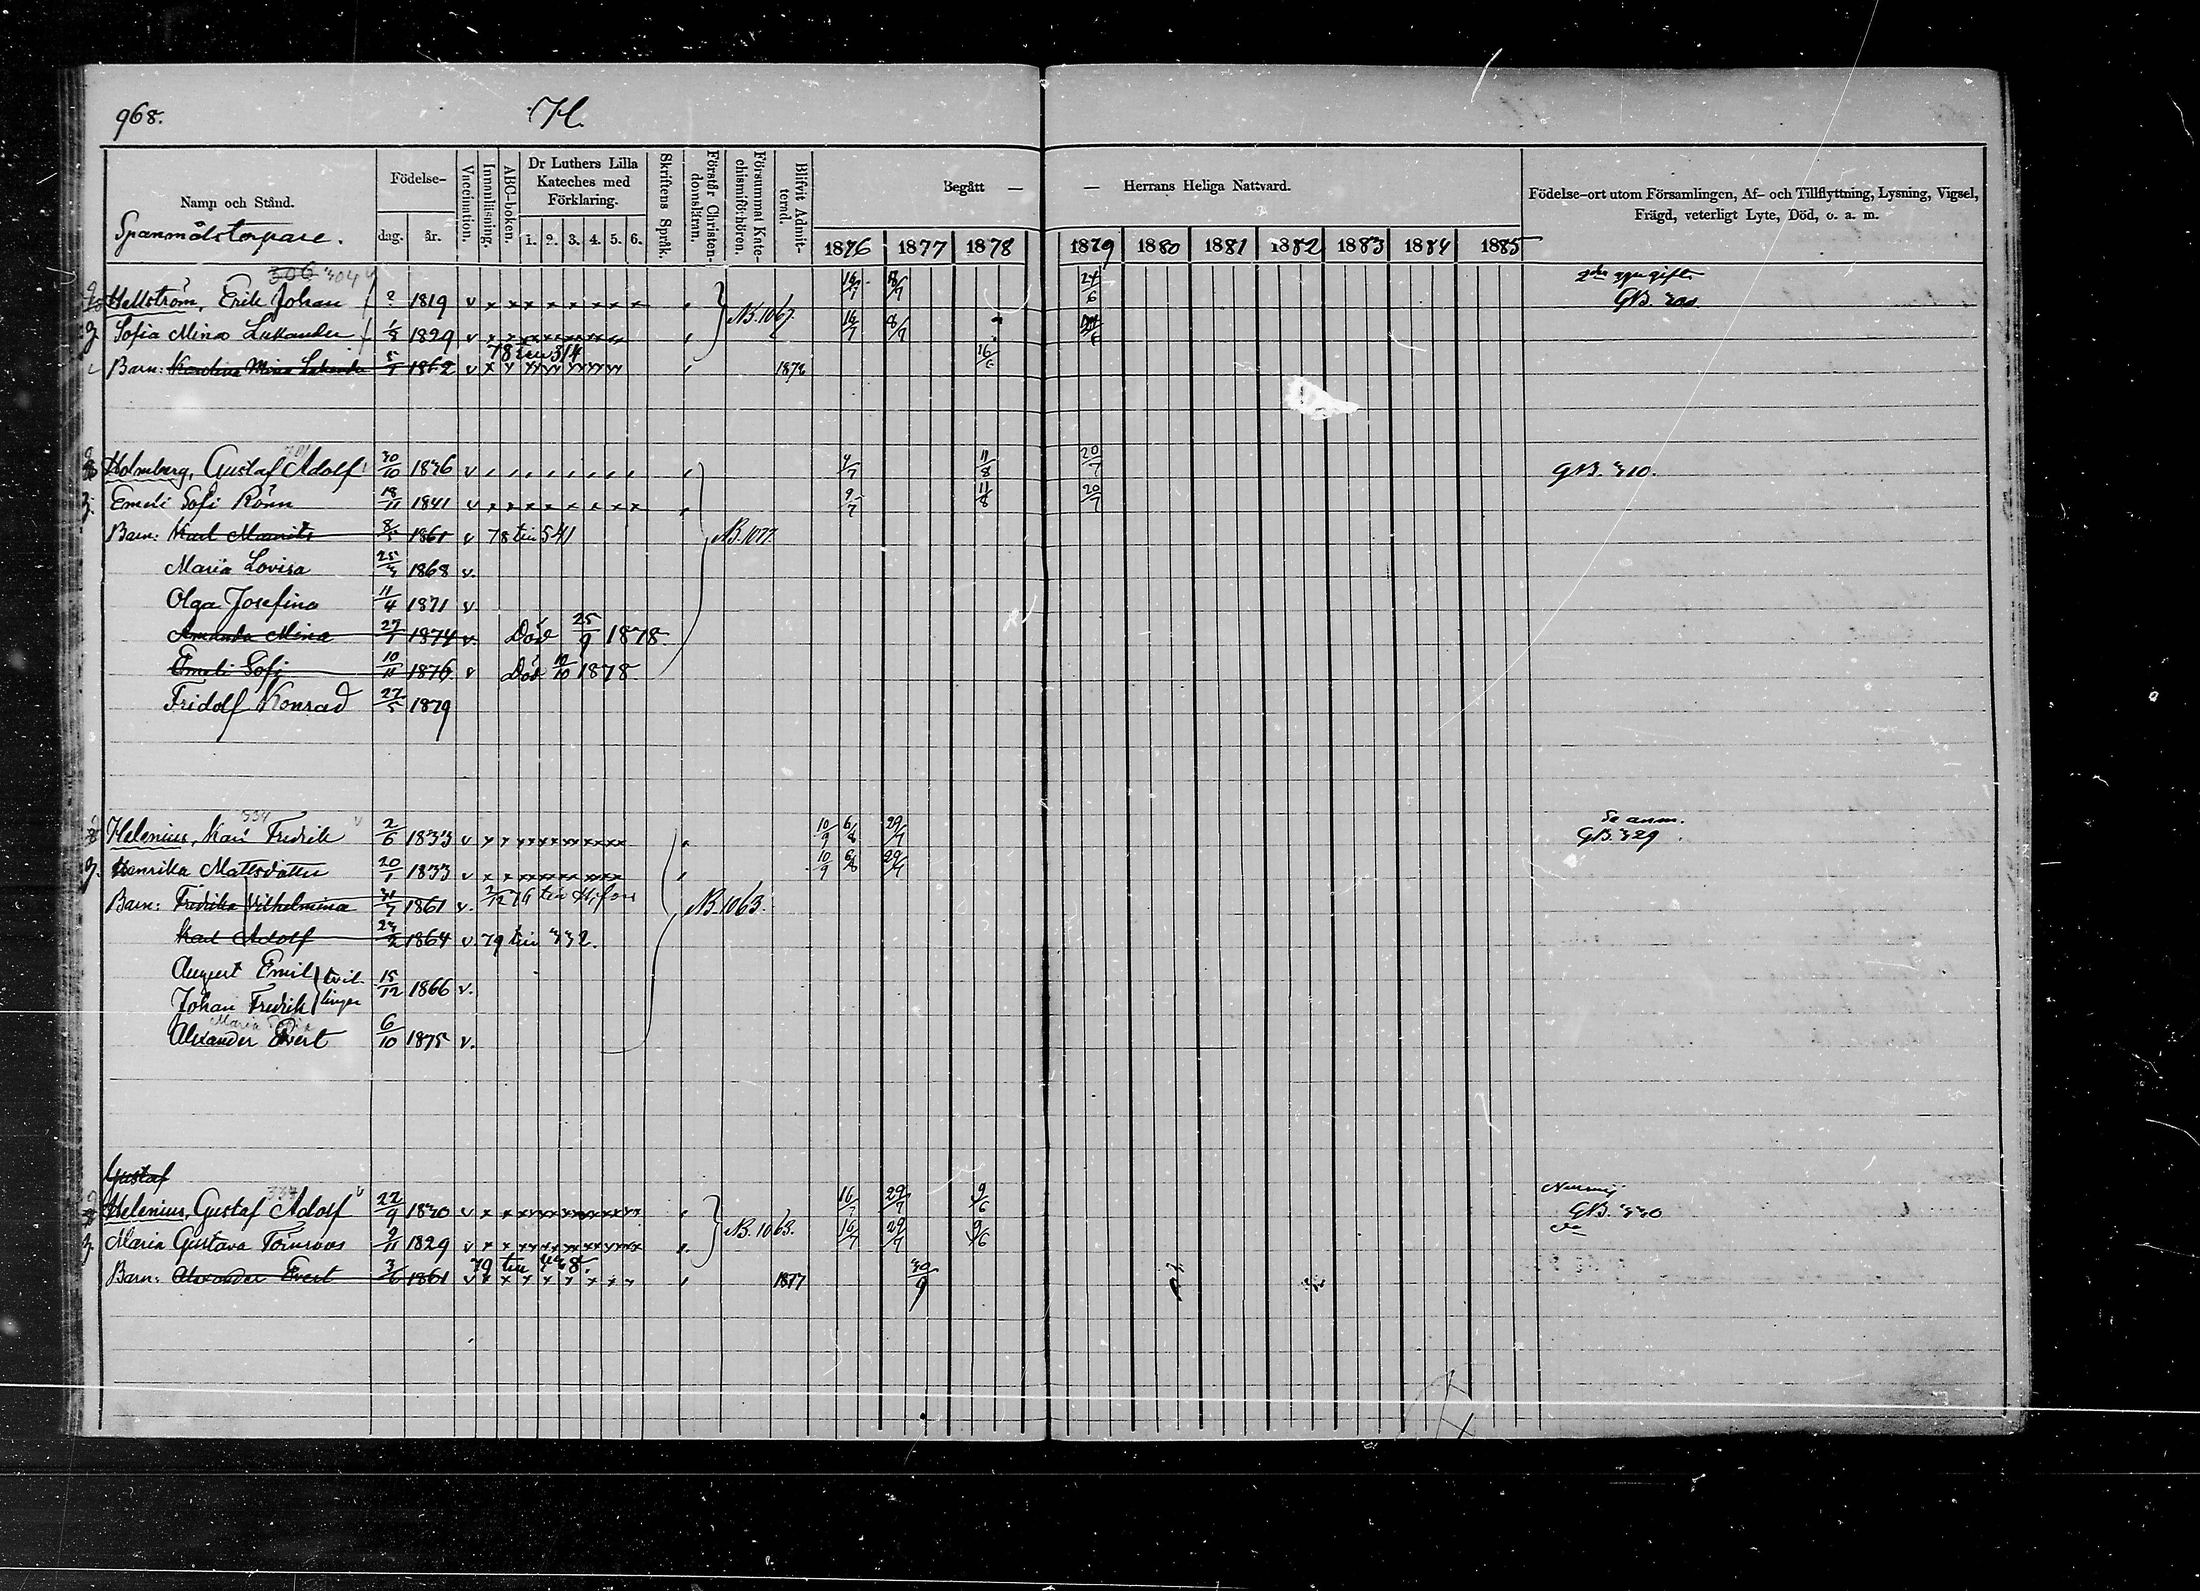 968.
H.
Namn och Stånd.
Spanmålstorpare.
Födelse-
dag. år.
Vaccination.
Innanläsning.
ABC-boken.
Dr Luthers Lilla Kateches med Förklaring.
1. 2. 3. 4. 5. 6.
Skriftens Språk.
Förstår Christendomsläran.
Försummat Katechismiförhören.
Blifvit Admitterad.
Begått — — Herrans Heliga Nattvard.
1876 1877 1878 1879 1880 1881 1882 1883 1884 1885
Födelse-ort utom Församlingen, Af- och Tillflyttning, Lysning, Vigsel,
Frägd, veterligt Lyte, Död, o. a. m.
306 304
Hellström, Erik Johan 1819 v N.B. 1067. 16/7 8/7 24/6
Sofia Mina 1829 v 16/7 8/7
78 till 314
Barn: Karolina Mina 1862 v 1878 16/6
Holmberg, Gustaf Adolf 30/10 1836 v 11/8 20/7 GB. 310.
Emeli Sofi Rönn 18/11 1841 v 9/7 11/8 20/7
Barn: Karl Maurits 1861 v 78 till 541 N.B. 1077.
Maria Lovisa 25/3 1868 v.
Olga Josefina 11/4 1871 v
Amanda Mina 27/1 1874 v. Död 25/9 1878.
Emeli Sofi 10/11 1876 v Död 1878.
Fridolf Konrad 27/5 1879
534
Helenius, Karl Fredrik 2/6 1833 v 10/9 6/8 29/7 Se anm.
GB. 329.
Henrika Mattsdotter 20/1 1833 v 10/9 6/8 29/7
Barn: Fredrika Vilhelmina 1861 v. till H:fors N.B. 1063.
Karl Adolf 1864 v 79 till 332.
August Emil tvil-
Johan Fredrik lingar 15/12 1866 v.
Maria Sofia
Alexander Evert 6/10 1875 v.
Gustaf
Helenius, Gustaf Adolf 22/9 1830 v N.B. 1063. 16/7 29/7 9/6 GB. 330
Maria Gustava Törnroos 9/11 1829 v 16/7 29/7 9/6
79 till
Barn: Alexander Evert 3/6 1861 v 1877 30/9